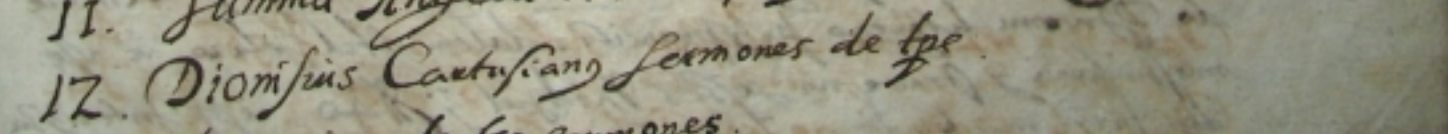 11. Summa
12. Dionisius Cartusianꝰ sermones de tpe.
sermones.